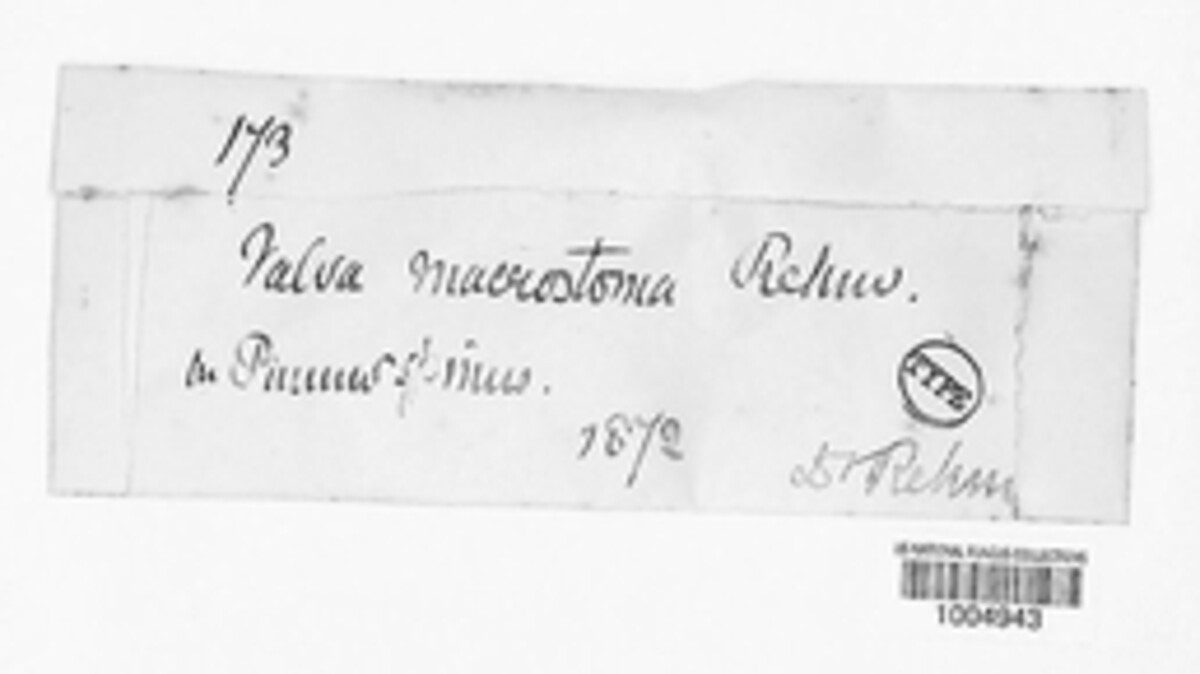 173
Valsa macrostoma Rehm.
on Prunus spinus.
TYPE
1872
Dr Rehm
US NATIONAL FUNGUS COLLECTIONS
1004943